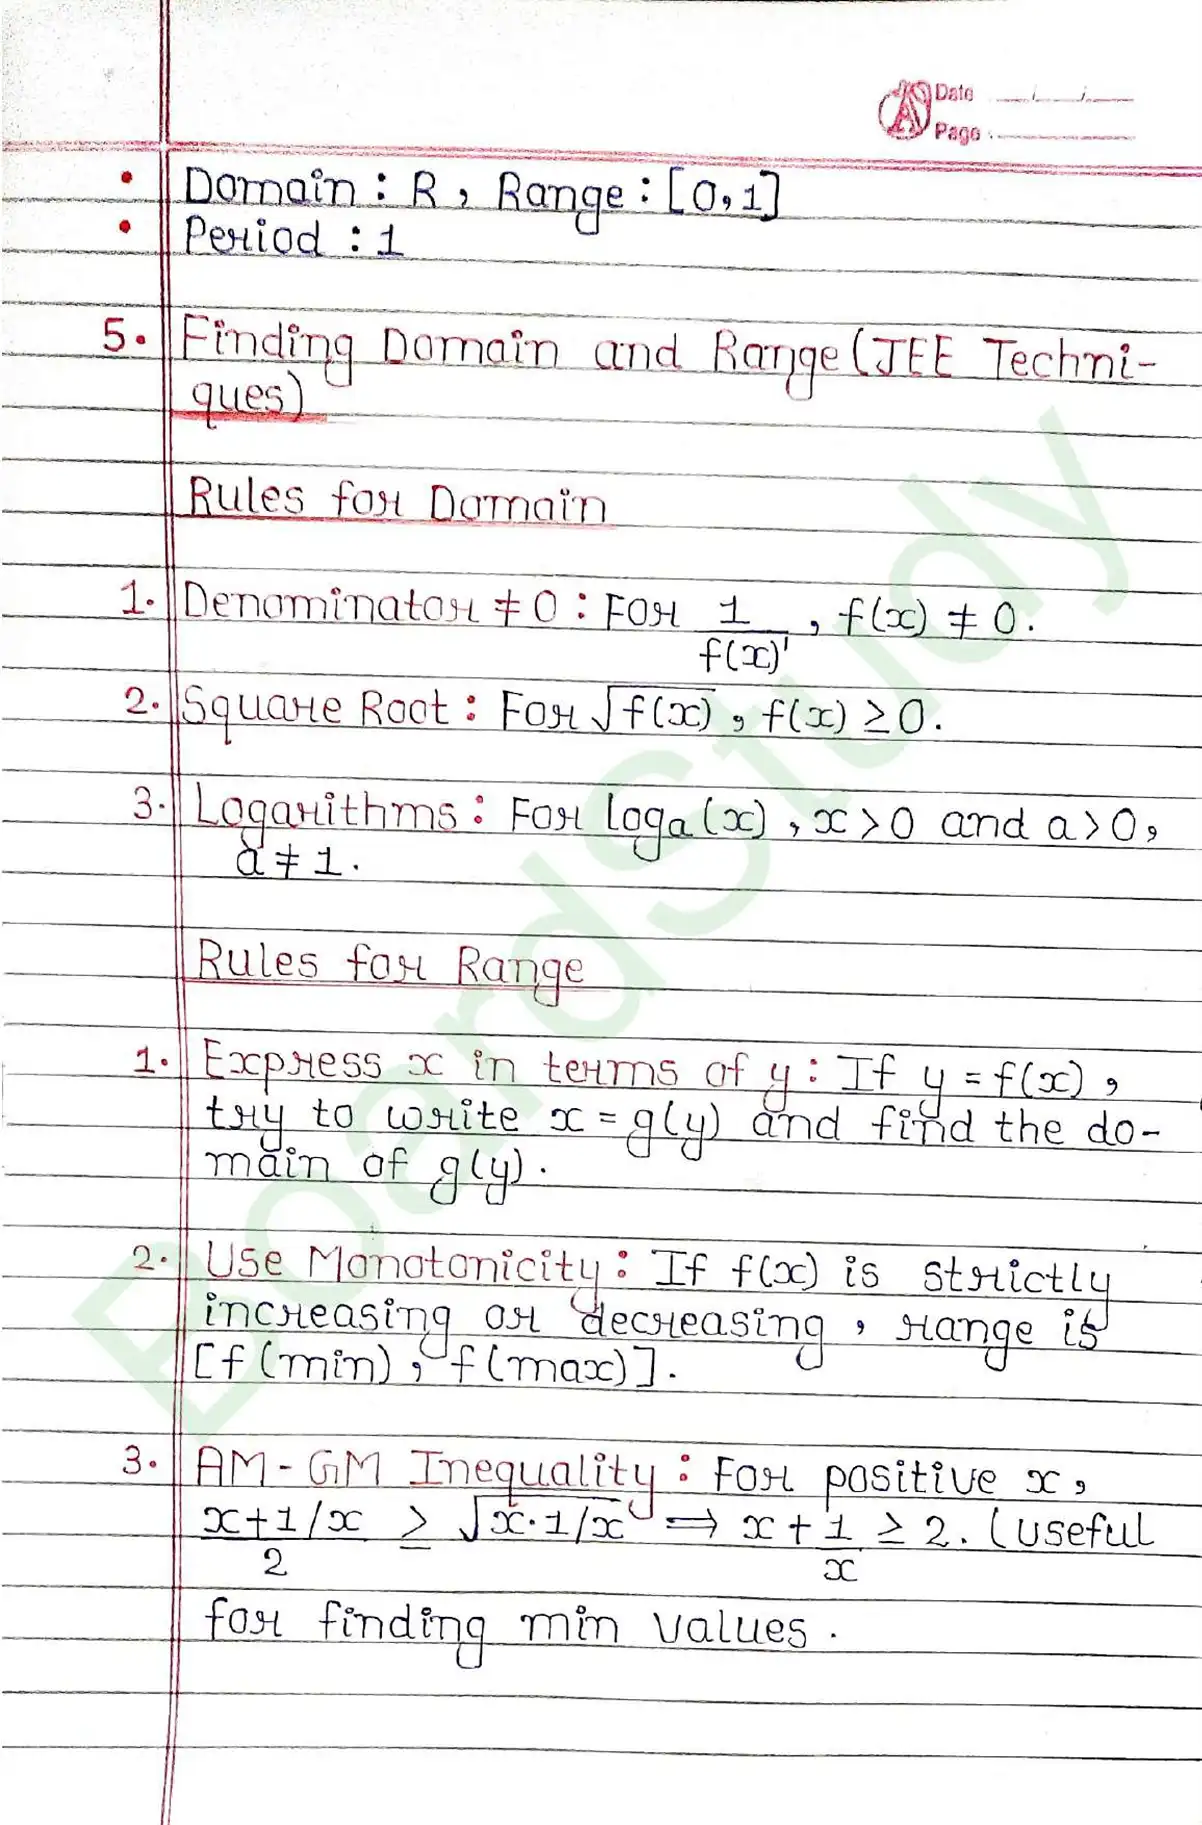 Date
Page
• Domain : R , Range : [0,1]
• Period : 1
5. Finding Domain and Range (JEE Techni-
ques)
Rules for Domain
1. Denominator ≠ 0 : For 1/f(x)' , f(x) ≠ 0.
2. Square Root : For √f(x) , f(x) ≥ 0.
3. Logarithms : For loga(x) , x > 0 and a > 0,
a ≠ 1.
Rules for Range
1. Express x in terms of y : If y = f(x) ,
try to write x = g(y) and find the do-
main of g(y).
2. Use Monotonicity : If f(x) is strictly
increasing or decreasing , range is
[f(min) , f(max)].
3. AM-GM Inequality : For positive x ,
x+1/x / 2 ≥ √x·1/x ⟹ x + 1/x ≥ 2. (useful
for finding min values.
BoardStudy